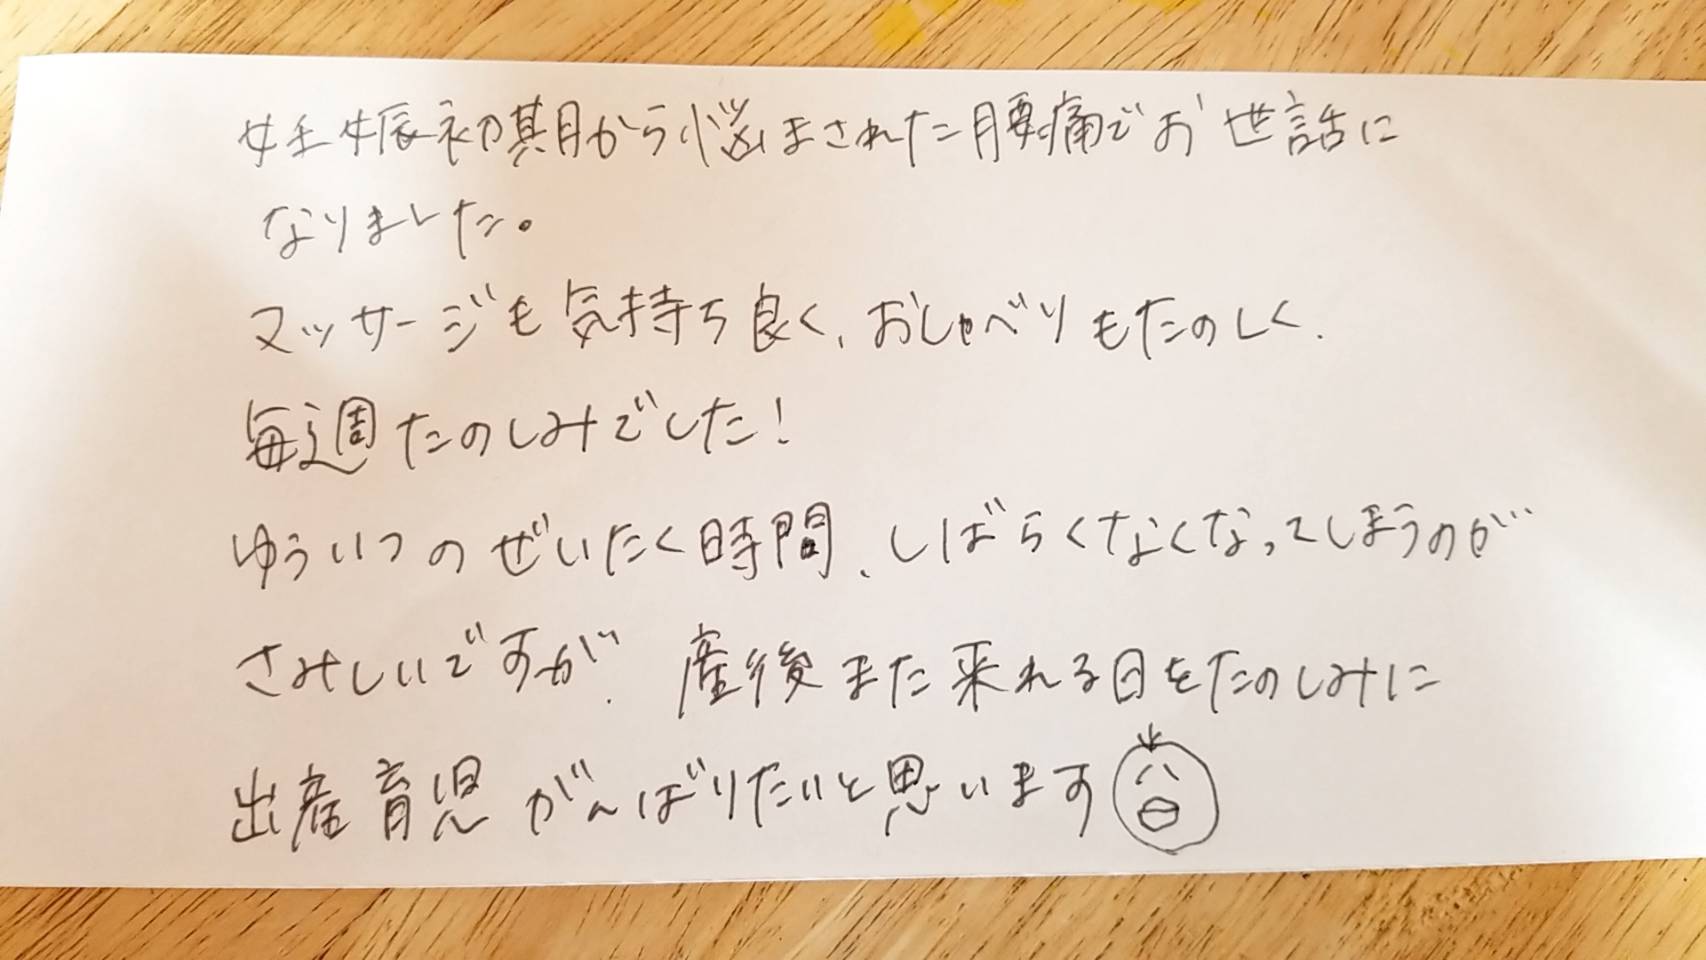 妊娠初期から悩まされた腰痛でお世話に
なりました。
マッサージも気持ち良く、おしゃべりもたのしく、
毎週たのしみでした!
ゆういつのぜいたく時間、しばらくなくなってしまうのが
さみしいですが、産後また来れる日をたのしみに
出産育児がんばりたいと思います